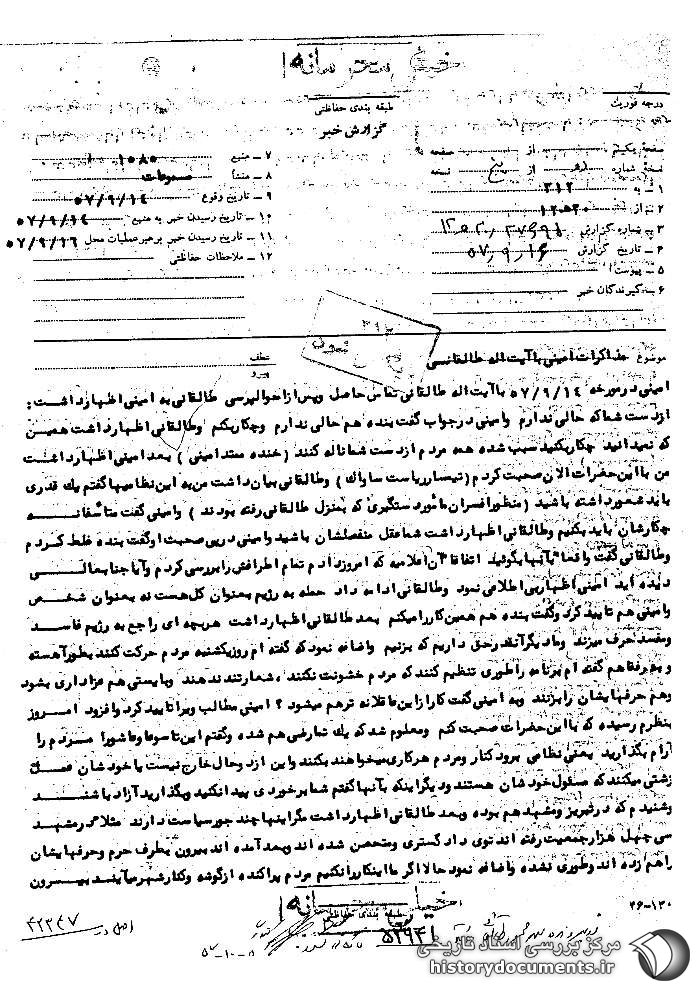 خیلی محرمانه
درجه فوریت
طبقه بندی حفاظتی
گزارش خبر
صفحه یکم از صفحه
نسخه شماره از پنج نسخه
۱ ـ به ۳۱۲
۲ ـ از ۱۲ ه‍ ۲۰
۳ ـ شماره گزارش
۴ ـ تاریخ گزارش ۵۷/۹/۱۶
۵ ـ پیوست
۶ ـ گیرندگان خبر
۷ ـ منبع ۱۰۸۰
۸ ـ منشأ مسموعات
۹ ـ تاریخ وقوع ۵۷/۹/۱۴
۱۰ ـ تاریخ رسیدن خبر به منبع ۵۷/۹/۱۴
۱۱ ـ تاریخ رسیدن خبر برهبر عملیات محل ۵۷/۹/۱۶
۱۲ ـ ملاحظات حفاظتی
موضوع مذاکرات امینی با آیت اله طالقانی
عطف
پیرو
امینی در مورخه ۵۷/۹/۱۴ با آیت اله طالقانی تماس حاصل و پس از احوالپرسی طالقانی به امینی اظهار داشت :
از دست شما که حالی ندارم و امینی در جواب گفت بنده هم حالی ندارم و چکار بکنم و طالقانی اظهار داشت همین
که نمیدانید چکار بکنید سبب شده همه مردم از دست شما ناله کنند ( خنده ممتد امینی ) بعد امینی اظهار داشت
من با این حضرات الان صحبت کردم ( تیمسار ریاست ساواک ) و طالقانی بیان داشت من به این نظامیها گفتم یک قدری
باید شعور داشته باشید ( منظور افسران مأمور دستگیری که بمنزل طالقانی رفته بودند ) و امینی گفت متأسفانه
چکارشان باید بکنیم و طالقانی اظهار داشت شما عقل منفصلشان باشید و امینی در پی صحبت او گفت بنده غلط کردم
و طالقانی گفت واقعا بآنها بگوئید اتفاقا آن اعلامیه که امروز دادم تمام اطرافش را بررسی کردم و آیا جنابعالی
دیده اید امینی اظهار بی اطلاعی نمود و طالقانی ادامه داد حمله به رژیم بعنوان کل هست نه بعنوان شخص
و امینی هم تایید کرد و گفت بنده هم همین کار را میکنم بعد طالقانی اظهار داشت هر بچه ای راجع به رژیم فاسد
و مفسد حرف میزند و ما دیگر آنقدر حق داریم که بزنیم و اضافه نمود که گفته ام روز یکشنبه مردم حرکت کنند بطور آهسته
و به رفقا هم گفته ام برنامه را طوری تنظیم کنند که مردم خشونت نکنند ، شعار تند ندهند و بایستی هم عزاداری بشود
و هم حرفهایشان را بزنند و به امینی گفت کار از این عاقلانه تر هم میشود ؟ امینی مطالب ویرا تایید کرد و افزود امروز
بنظرم رسیده که با این حضرات صحبت کنم و معلوم شد که یک تعارضی هم شده و گفتم این تاسوعا و عاشورا مردم را
آرام بگذارید یعنی نظامی برود کنار و مردم هر کاری میخواهند بکنند و این از دو حال خارج نیست یا خودشان عمل
زشتی میکنند که مسئول خودشان هستند و دیگر اینکه بآنها گفتم شما برخوردی پیدا نکنید و بگذارید آزاد باشند
و شنیدم که در تبریز و مشهد هم بوده و بعد طالقانی اظهار داشت مگر اینها چند جور سیاست دارند مثلا در مشهد
سی چهل هزار جمعیت رفته اند توی دادگستری و متحصن شده اند و بعد آمده اند بیرون بطرف حرم و حرفهایشان
را هم زده اند و طوری نشده و اضافه نمود حالا اگر ما اینکار را نکنیم مردم پراکنده از گوشه و کنار شهر میآیند بیرون
خیلی محرمانه
طبقه بندی حفاظتی
۳۶-۱۳۰
۵۲۹۴۱
اصل در ۴۲۳۴۷
۵۷-۱۰-۵
مرکز بررسی اسناد تاریخی
historydocuments.ir